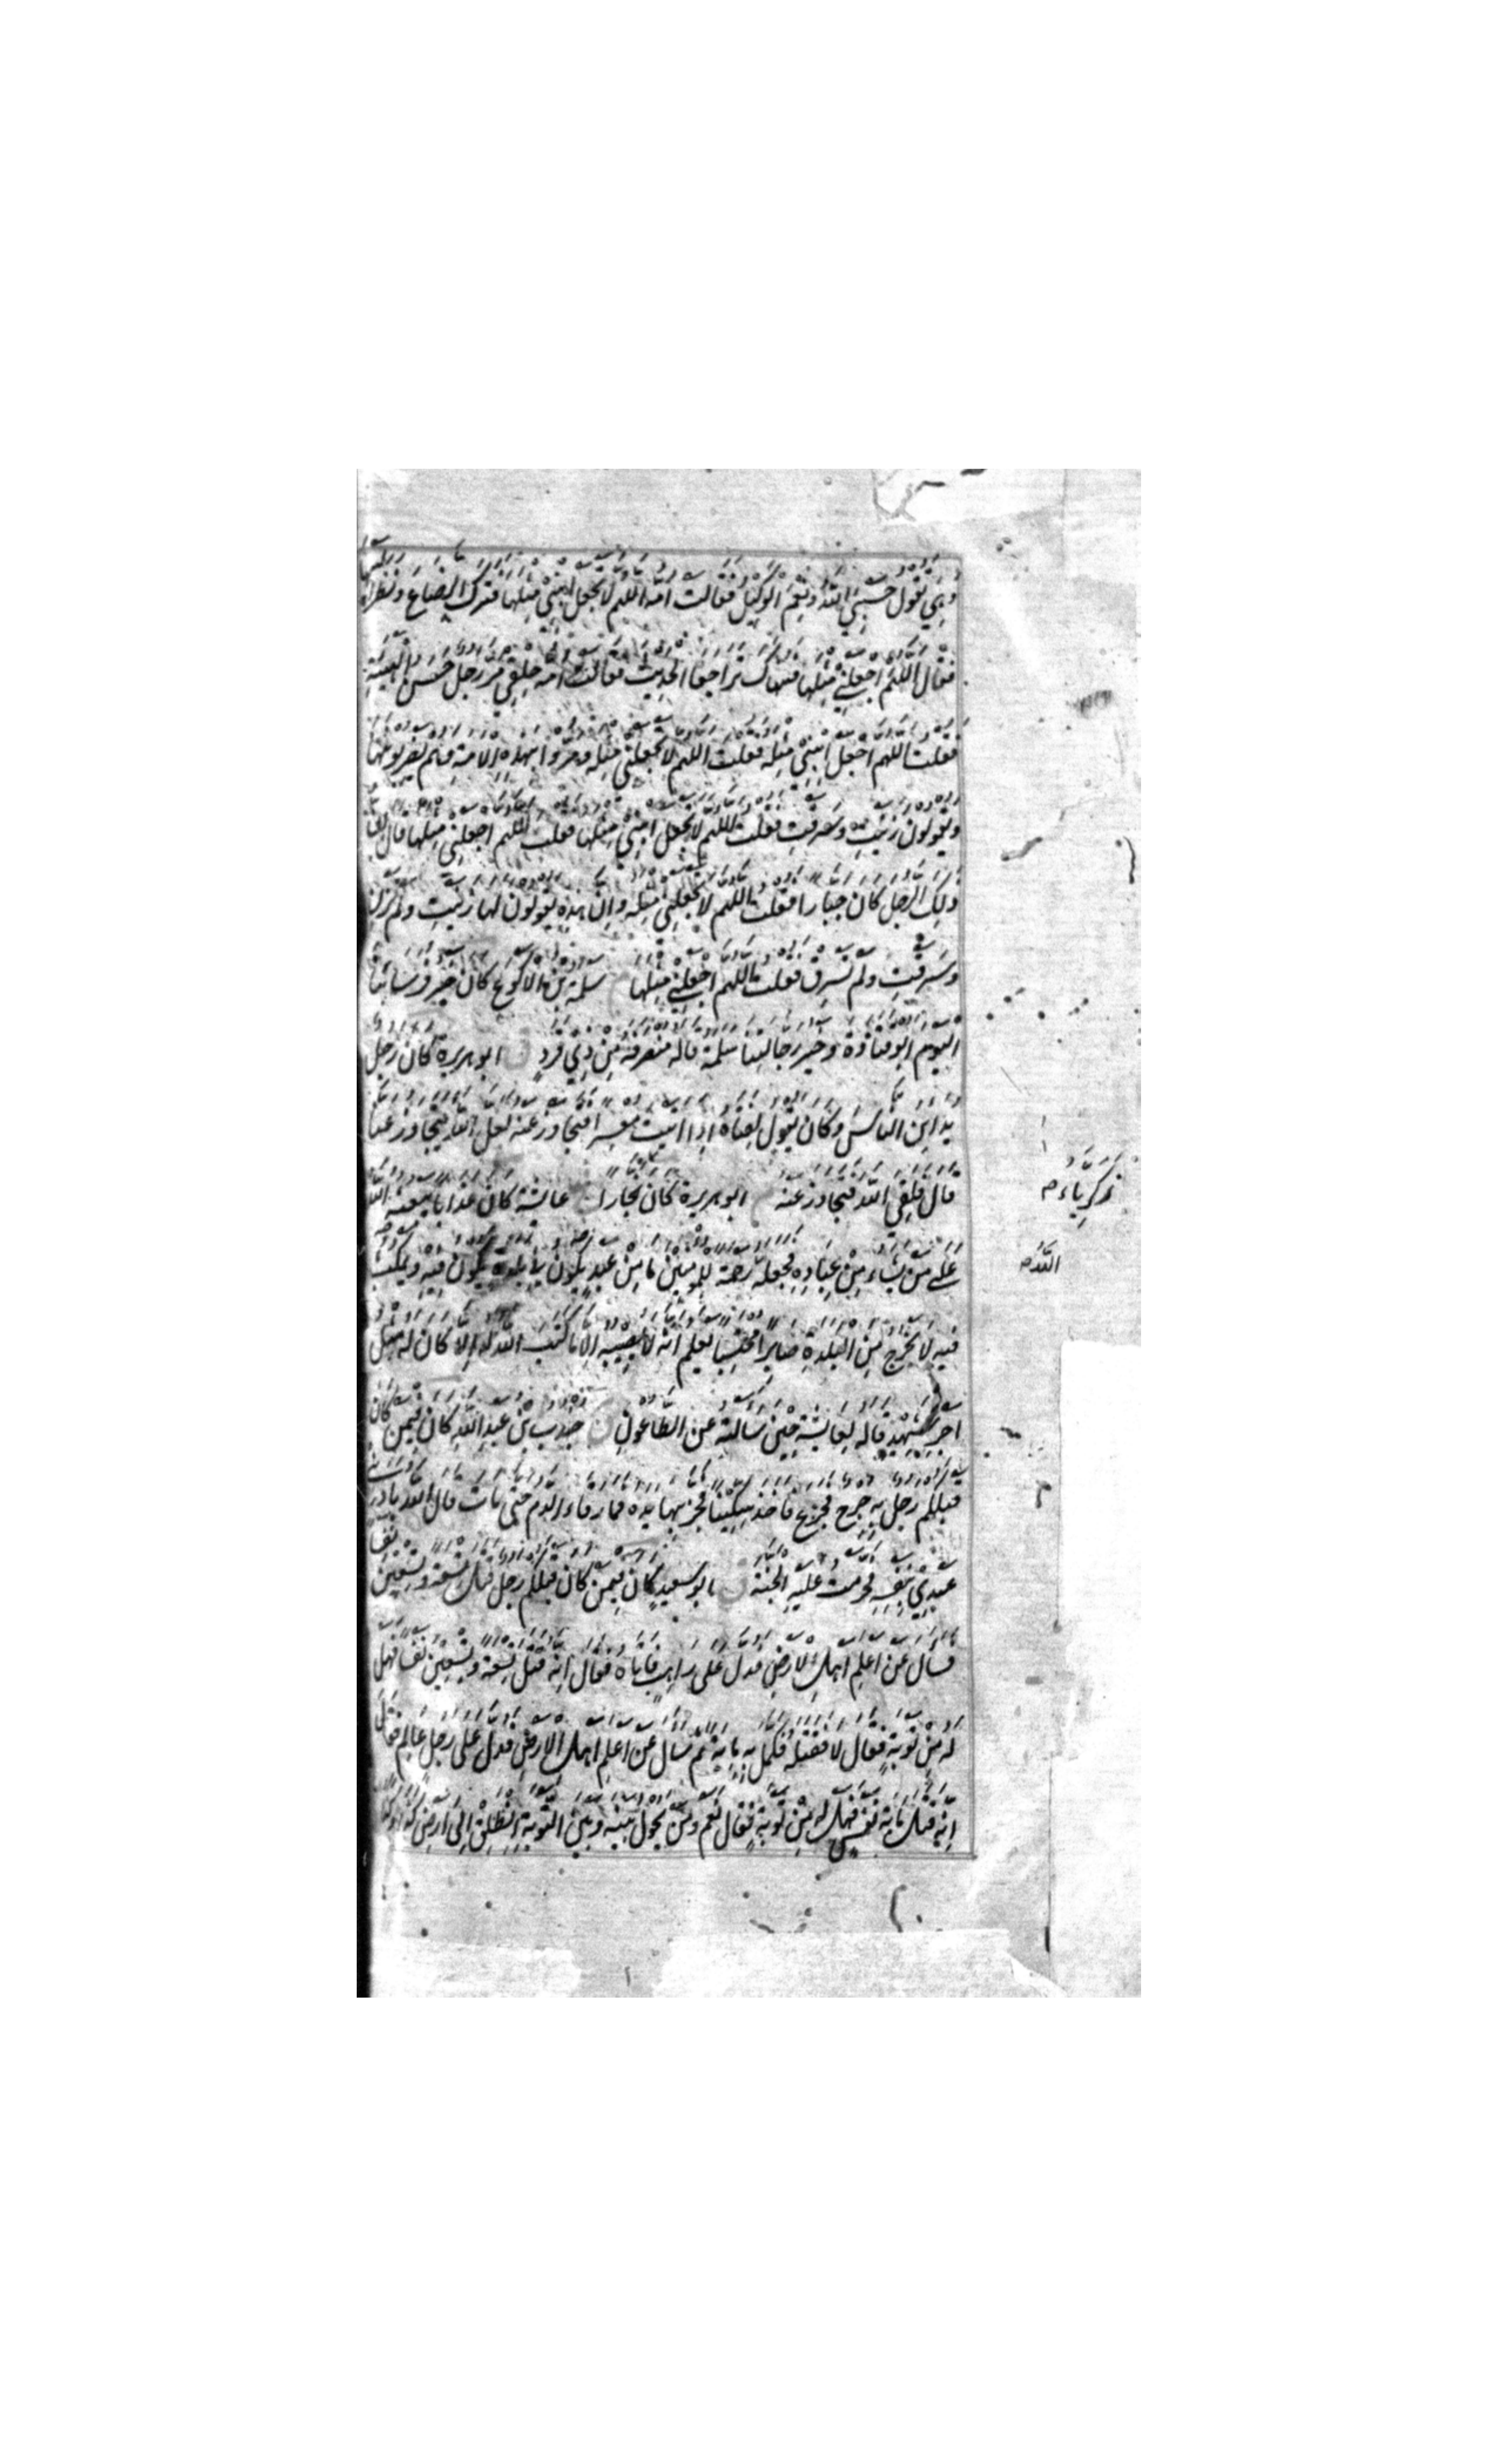 وهي تقول حسبي الله ونعم الوكيل فقالت امه اللهم لا تجعل ابني مثلها فترك الرضاع ونظر اليها
فقال اللهم اجعلني مثلها فهناك تراجعا الحديث فقالت امه حلقي مر رجل حسن الهيئة
فقلت اللهم اجعل ابني مثله فقلت اللهم لا تجعلني مثله ومروا بهذه الامة وهم يضربونها
ويقولون زنيت وسرقت فقلت اللهم لا تجعل ابني مثلها فقلت اللهم اجعلني مثلها قال ان
ذلك الرجل كان جبارا فقلت اللهم لا تجعلني مثله وان هذه يقولون لها زنيت ولم تزن
وسرقت ولم تسرق فقلت اللهم اجعلني مثلها م سلمة بن الاكوع كان خير فرساننا
اليوم ابو قتادة وخير رجالتنا سلمة قاله منصرفه من ذي قرد ق ابو هريرة كان رجل
يداين الناس وكان يقول لفتاه اذا اتيت معسرا فتجاوز عنه لعل الله يتجاوز عنا
قال فلقي الله فتجاوز عنه م ابو هريرة كان نجارا عائشة كان عذابا يبعثه الله
على من يشاء من عباده فجعله رحمة للمومنين ما من عبد يكون في بلدة يكون فيه ويمكث
فيه لا يخرج من البلدة صابرا محتسبا يعلم انه لا يصيبه الا ما كتب الله له الا كان له مثل
اجر شهيد قاله لعائشة حين سالته عن الطاعون ق جندب بن عبد الله كان فيمن كان
قبلكم رجل به جرح فجزع فاخذ سكينا فحز بها يده فما رقاء الدم حتى مات قال الله بادرني
عبدي بنفسه فحرمت عليه الجنة ق ابو سعيد كان فيمن كان قبلكم رجل قتل تسعة وتسعين نفسا
فسأل عن اعلم اهل الارض فدل على راهب فاتاه فقال انه قتل تسعة وتسعين نفسا فهل
له من توبة فقال لا فقتله فكمل به مائة ثم سأل عن اعلم اهل الارض فدل على رجل عالم فقال
انه قتل مائة نفس فهل له من توبة فقال نعم ومن يحول بينه وبين التوبة انطلق الى ارض كذا وكذا
زكرياء م
الله م